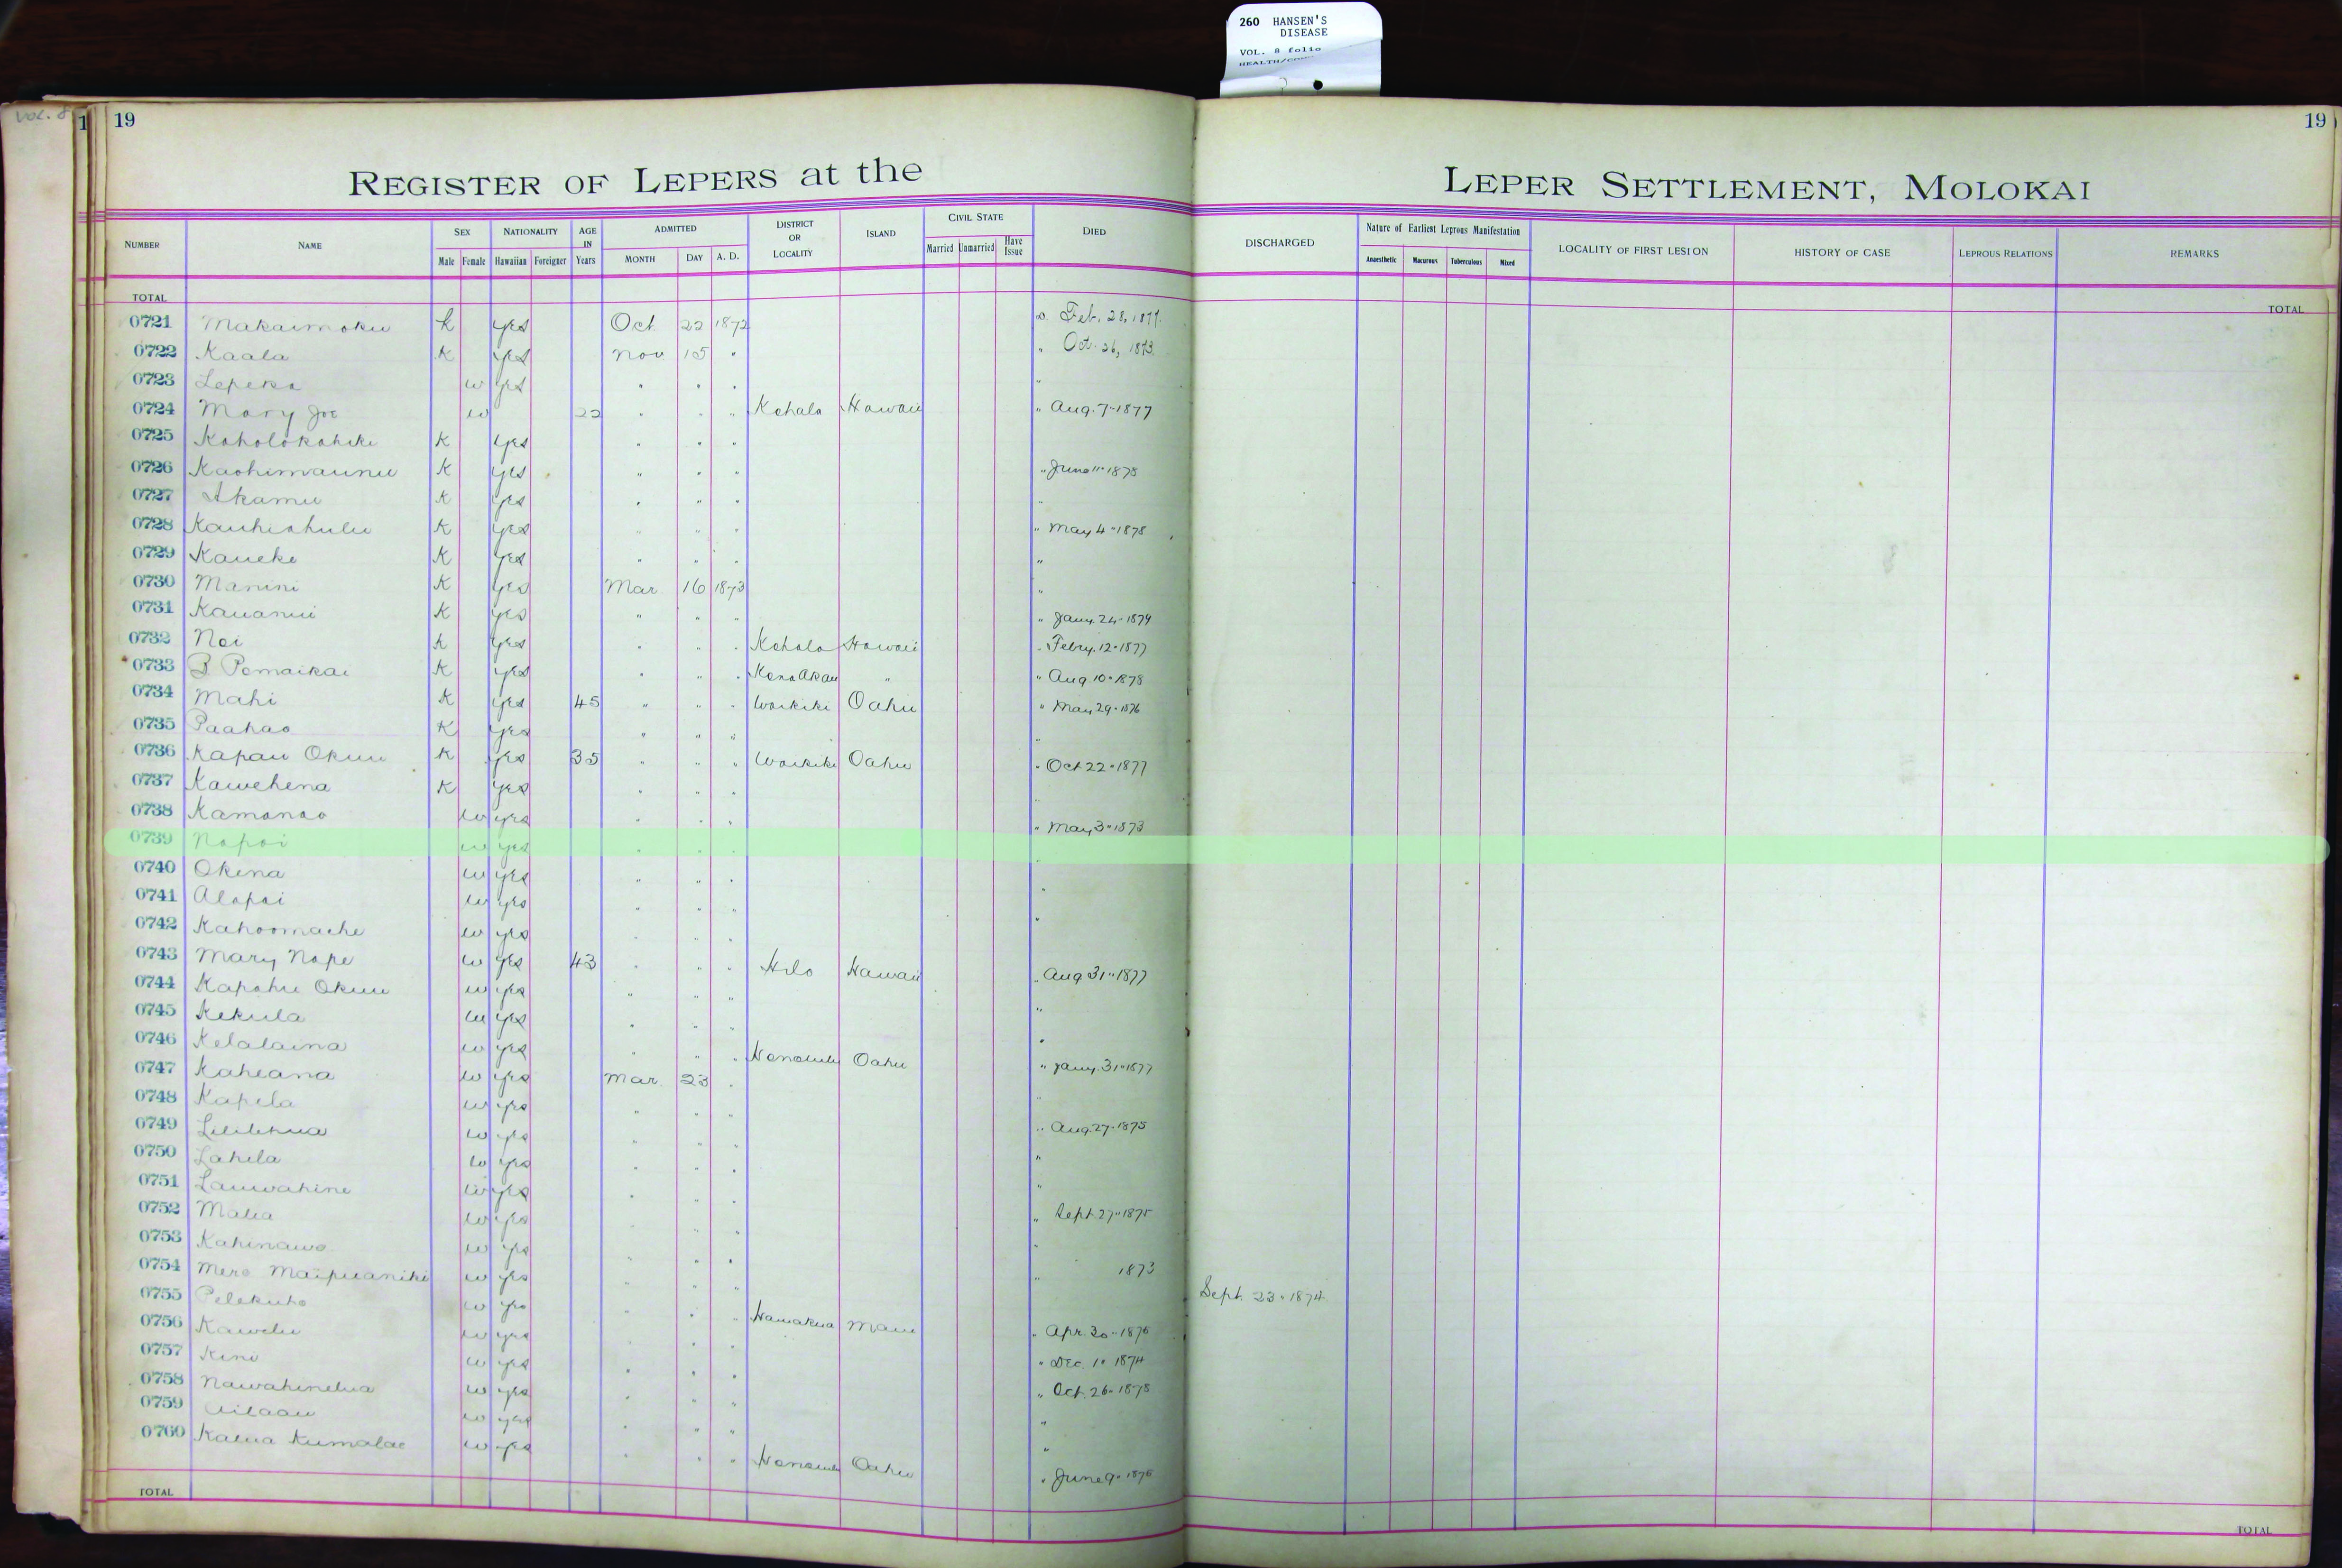 260 HANSEN'S
DISEASE
VOL. 8 folio
Vol. 8
1 19 19
REGISTER OF LEPERS at the LEPER SETTLEMENT, MOLOKAI
NUMBER NAME SEX Male Female NATIONALITY Hawaiian Foreigner AGE IN Years ADMITTED MONTH DAY A. D. DISTRICT OR LOCALITY ISLAND CIVIL STATE Married Unmarried Have Issue DIED DISCHARGED Nature of Earliest Leprous Manifestation Anaesthetic Macurous Tuberculous Mixed LOCALITY OF FIRST LESION HISTORY OF CASE LEPROUS RELATIONS REMARKS
TOTAL TOTAL
0721 Makaimoku k yes Oct 22 1872 Feb. 28, 1877.
0722 Kaala K yes Nov 15 " " Oct. 26, 1873.
0723 Lepeka w yes " " " "
0724 Mary Joe w 22 " " " Kohala Hawaii " Aug. 7 " 1877
0725 Koholokahiki K yes " " "
0726 Kaohimaunu K yes " " " " June 11 " 1878
0727 Akamu K yes " " " "
0728 Kauhiahulu K yes " " " " May 4 " 1878
0729 Kaueke K yes " " " "
0730 Manini K yes Mar 16 1873 "
0731 Kauanui K yes " " " " Jany. 24 " 1879
0732 Noi K yes " " " Kohala Hawaii " Febry. 12 " 1877
0733 B Pomaikai K yes " " " Kona Akau " " Aug 10 " 1878
0734 Mahi K yes 45 " " " Waikiki Oahu " May 29 " 1876
0735 Paahao K yes " " " "
0736 Kapau Okuu K yes 35 " " " Waikiki Oahu " Oct 22 " 1877
0737 Kawehena K yes " " " "
0738 Kamanao w yes " " " " May 3 " 1873
0739 Napoi w yes " " " "
0740 Okena w yes " " " "
0741 Alapai w yes " " " "
0742 Kahoomaehe w yes " " " "
0743 Mary Nape w yes 43 " " " Hilo Hawaii " Aug 31 " 1877
0744 Kapahu Okuu w yes " " " "
0745 Kekula w yes " " " "
0746 Kelalaina w yes " " " Honolulu Oahu " Jany. 31 " 1877
0747 Kaheana w yes Mar. 23 " "
0748 Kapela w yes " " " " Aug. 27 " 1875
0749 Lililehua w yes " " " "
0750 Lahela w yes " " " "
0751 Lauwahine w yes " " " " Sept. 27 " 1875
0752 Malia w yes " " " "
0753 Kahinawe w yes " " " " 1873
0754 Mere Maipuaniki w yes " " " Sept. 23 " 1874
0755 Pelekuho w yes " " " Hamakua Maui " Apr. 30 " 1876
0756 Kawelu w yes " " " " Dec. 1 " 1874
0757 Kini w yes " " " " Oct. 26 " 1878
0758 Nawahinelua w yes " " " "
0759 Ailaau w yes " " " "
0760 Kalua Kumalae w yes " " " Honolulu Oahu " June 9 " 1876
TOTAL TOTAL